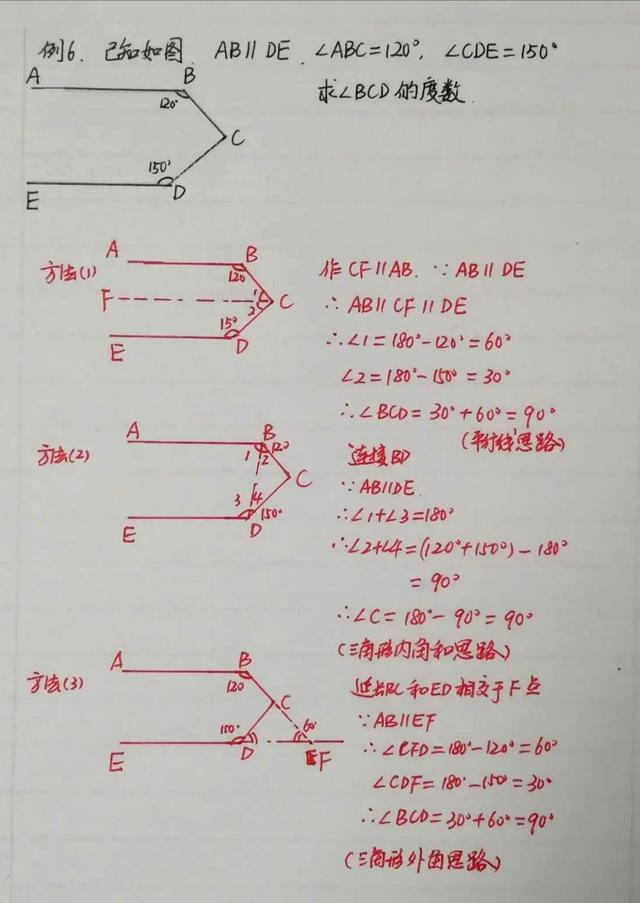 例6. 已知如图. AB∥DE. ∠ABC=120°, ∠CDE=150°
求∠BCD的度数.
A B
120°
C
150°
E D
方法(1)
A B
120
F 1 2 C
150
E D
作CF∥AB. ∵AB∥DE
∴AB∥CF∥DE
∴∠1=180°-120°=60°
∠2=180°-150°=30°
∴∠BCD=30°+60°=90°
(平行线思路)
方法(2)
A B
1 2 120
C
3 4 150°
E D
连接BD
∵AB∥DE.
∴∠1+∠3=180°
∴∠2+∠4=(120°+150°)-180°
=90°
∴∠C=180°-90°=90°
(三角形内角和思路)
方法(3)
A B
120
C
150° 60°
E D F
延长BC和ED相交于F点
∵AB∥EF
∴∠CFD=180°-120°=60°
∠CDF=180°-150°=30°
∴∠BCD=30°+60°=90°
(三角形外角思路)